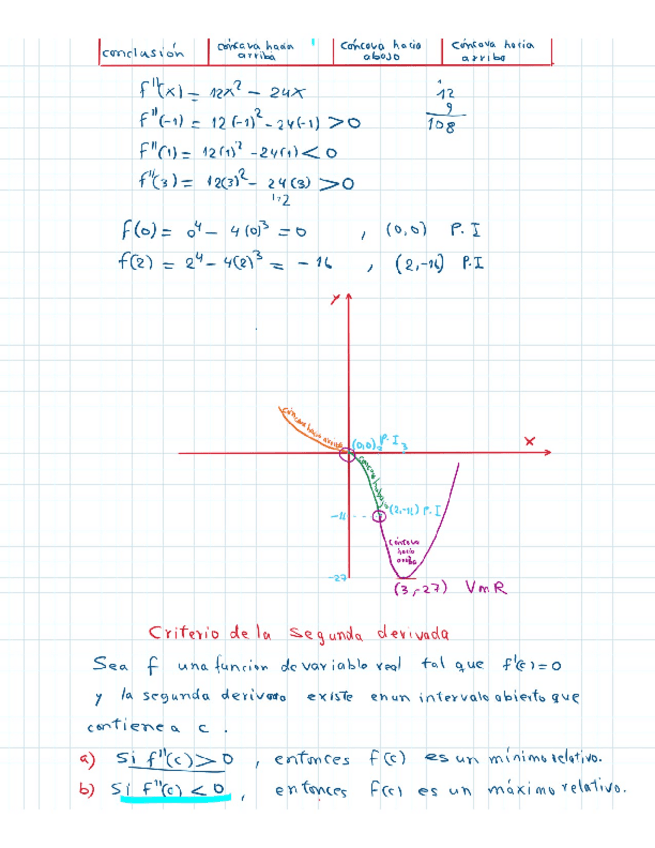 conclusión cóncava hacia arriba Cóncava hacia abajo Cóncava hacia arriba
f''(x) = 12x² - 24x
12
9
108
f''(-1) = 12(-1)² - 24(-1) > 0
f''(1) = 12(1)² - 24(1) < 0
f''(3) = 12(3)² - 24(3) > 0
f(0) = 0⁴ - 4(0)³ = 0 , (0,0) P.I
f(2) = 2⁴ - 4(2)³ = -16 , (2,-16) P.I
y
cóncava hacia arriba
(0,0) P.I
3
x
(2,-16) P.I
Cóncava
hacia
arriba
-27
(3,-27) VmR
Criterio de la segunda derivada
Sea f una función de variable real tal que f'(c)=0
y la segunda derivada existe en un intervalo abierto que
contiene a c .
a) Si f''(c) > 0 , entonces f(c) es un mínimo relativo.
b) Si f''(c) < 0 , entonces f(c) es un máximo relativo.